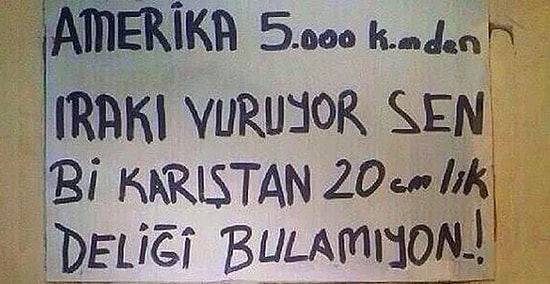 AMERİKA 5.000 k.mden
IRAKI VURUYOR SEN
Bİ KARIŞTAN 20 cm lik
DELİĞİ BULAMIYON..!